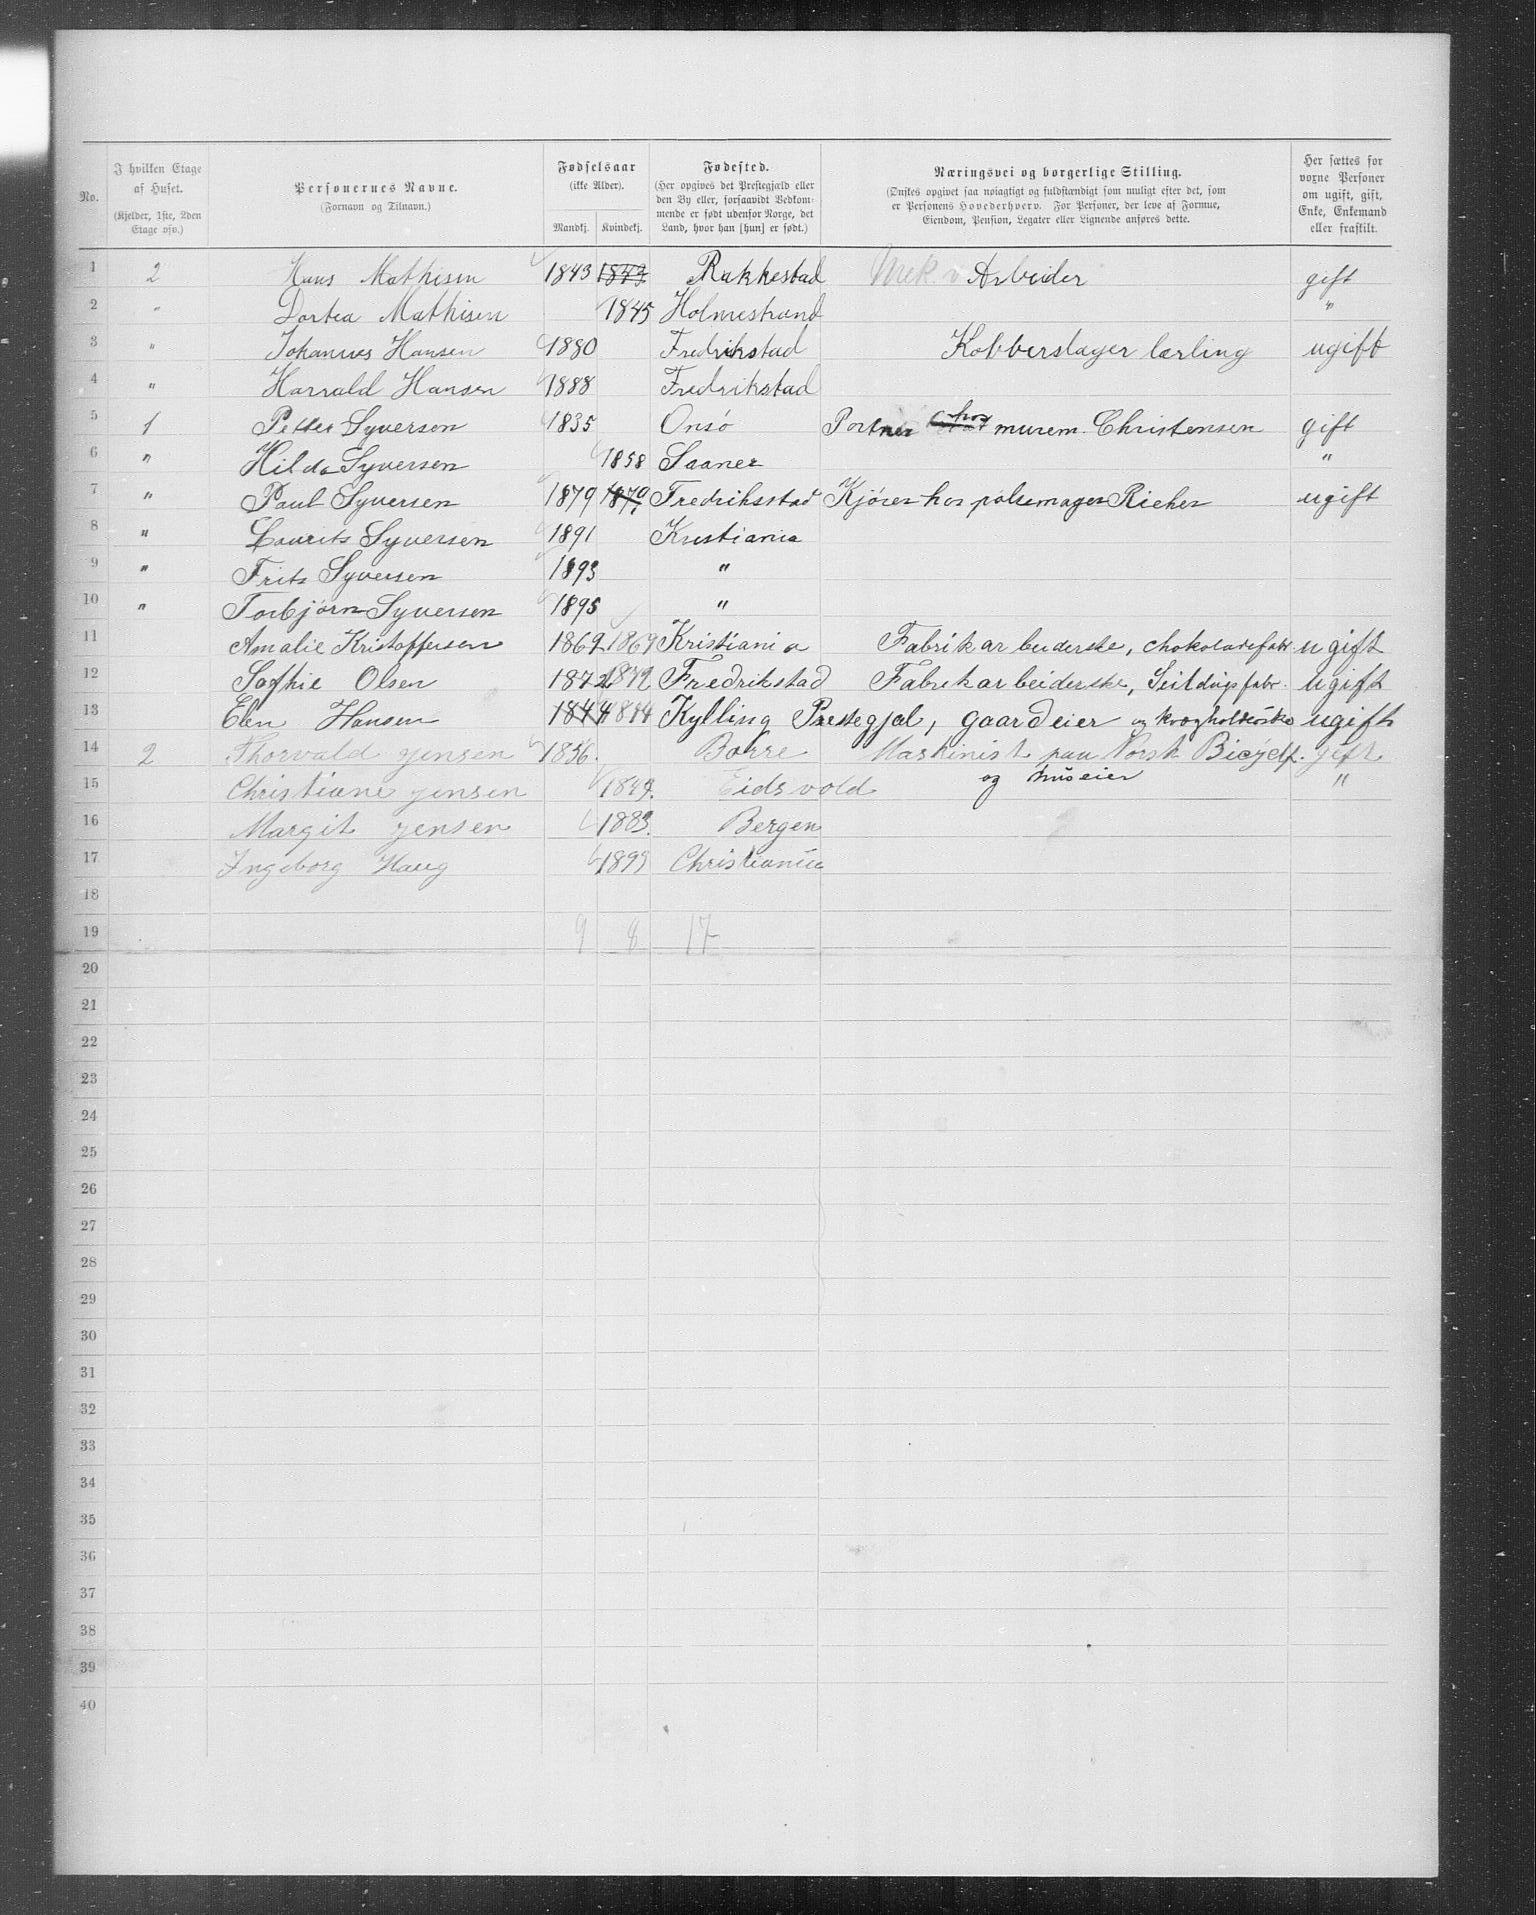 No. | I hvilken Etage af Huset. (Kjelder, 1ste, 2den Etage osv.) | Personernes Navne. (Fornavn og Tilnavn.) | Fødselsaar (ikke Alder). Mandkj. | Kvindekj. | Fødested. (Her opgives det Prestegjæld eller den By eller, forsaavidt Vedkommende er født udenfor Norge, det Land, hvor han [hun] er født.) | Næringsvei og borgerlige Stilling. (Ønskes opgivet saa nøiagtigt og fuldstændigt som muligt efter det, som er Personens Hovederhverv. For Personer, der leve af Formue, Eiendom, Pension, Legater eller Lignende anføres dette. | Her sættes for voxne Personer om ugift, gift, Enke, Enkemand eller fraskilt.
1 | 2 | Hans Mathisen | 1843 | 1843 | Rakkestad | Mek. v Arbeider | gift
2 | " | Dortea Mathisen | | 1845 | Holmestrand | | "
3 | " | Johannes Hansen | 1880 | | Fredrikstad | Kobberslager lærling | ugift
4 | " | Harrald Hansen | 1888 | | Fredrikstad
5 | 1 | Petter Syversen | 1835 | | Onsö | Portner hos murem. Christensen | gift
6 | " | Hilda Syversen | | 1858 | Saaner | | "
7 | " | Paul Syversen | 1879 | 1879 | Fredriksstad | Kjører hos pølsemager Rieker | ugift
8 | " | Laurits Syversen | 1891 | | Kristiania
9 | " | Frits Syversen | 1893 | | "
10 | " | Torbjörn Syversen | 1895 | | "
11 | | Amalie Kristoffersen | 1869 | 1869 | Kristiania | Fabrikarbeiderske, chokoladefabr. | ugift
12 | | Sofhie Olsen | 1872 | 1872 | Fredrikstad | Fabrikarbeiderske, Seildugsfabr. | ugift
13 | | Elen Hansen | 1844 | 1844 | Kylling Prestegjel, | gaardeier og kvægholderske | ugift
14 | 2 | Thorvald Jensen | 1856. | | Borre | Maskinist paa Norsk Bicyclf. | gift
15 | | Christiane Jensen | | 1849. | Eidsvold | og huseier | "
16 | | Margit Jensen | | 1883. | Bergen
17 | | Ingeborg Haug | | 1899 | Christiania
18
19 | | | 9 | 8 | 17
20
21
22
23
24
25
26
27
28
29
30
31
32
33
34
35
36
37
38
39
40